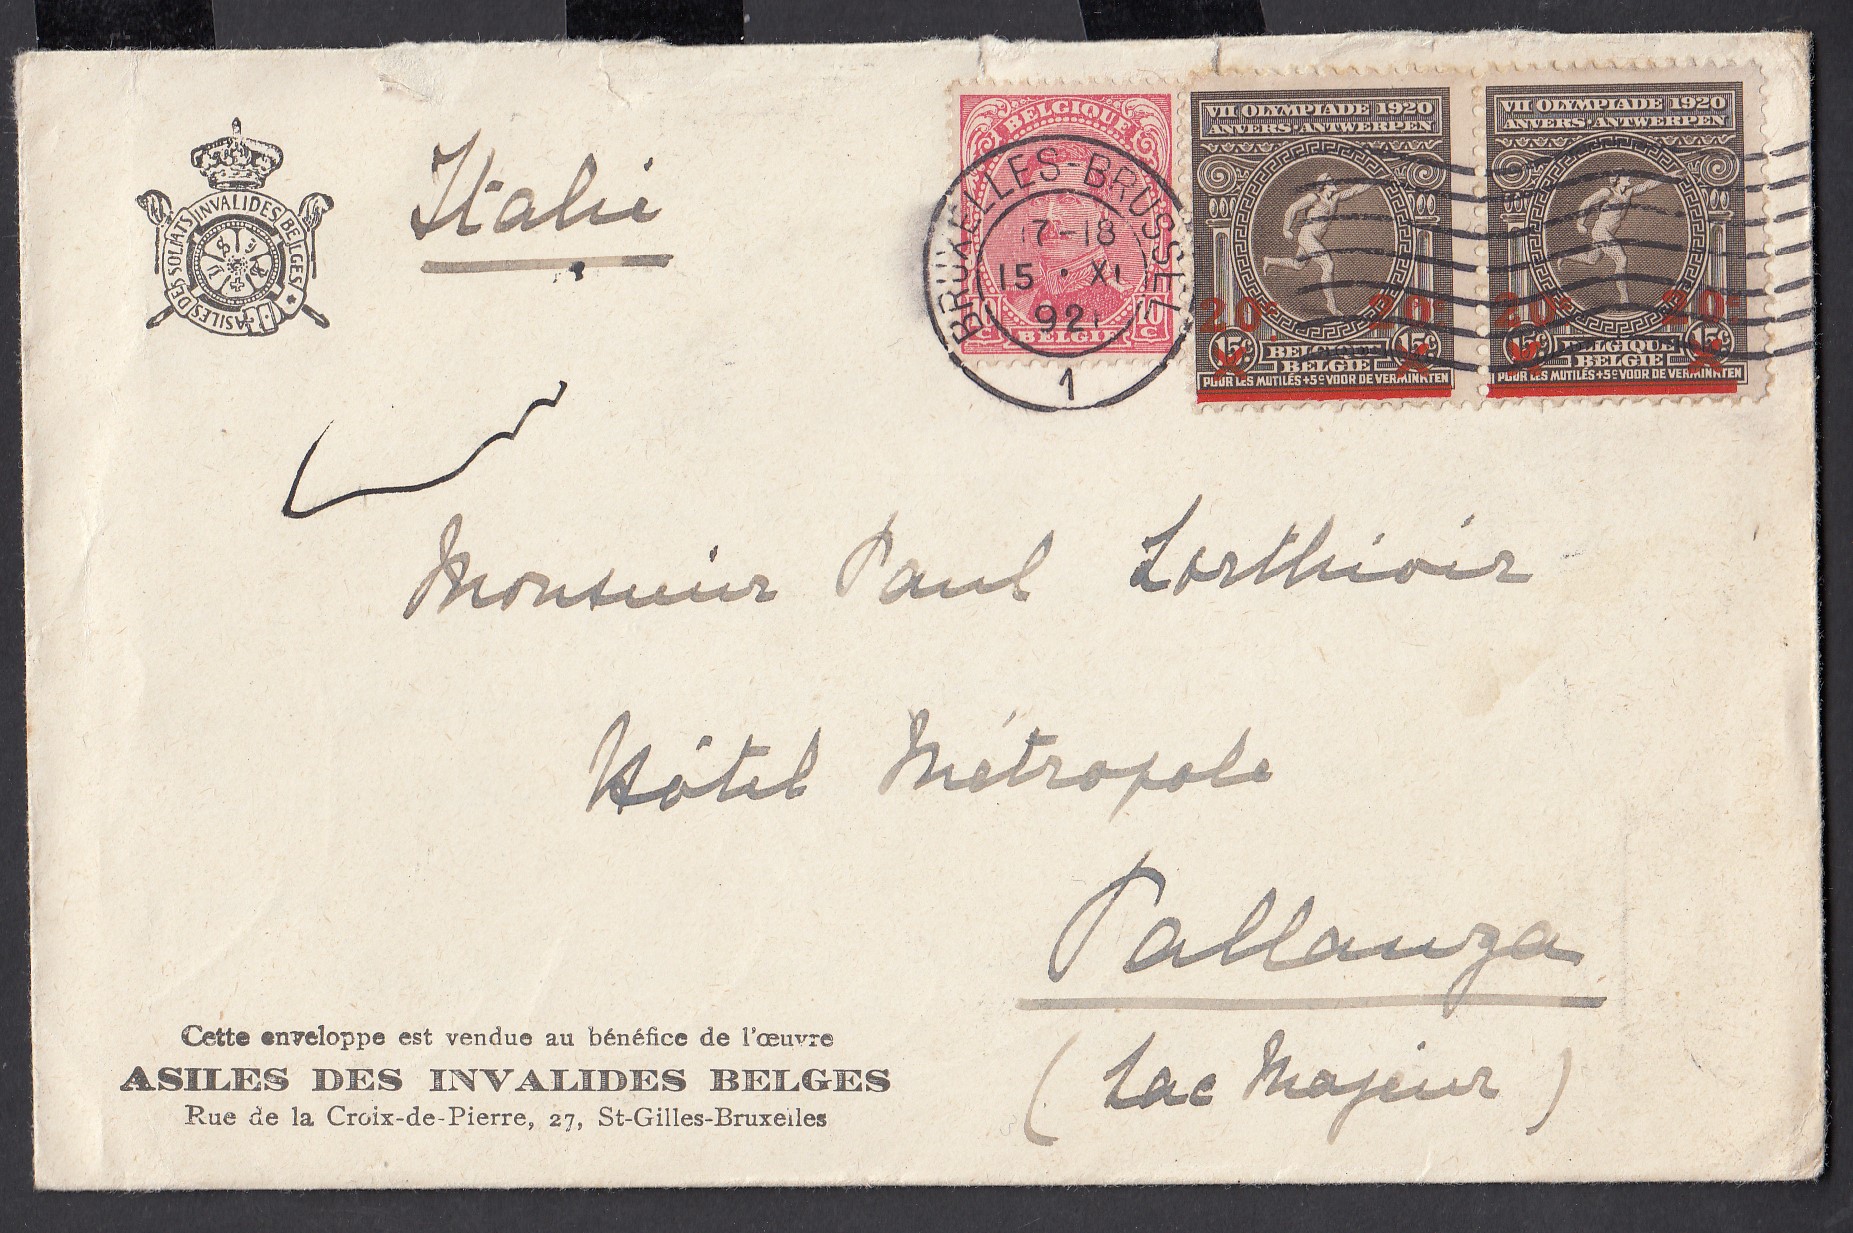 ASILES DES SOLDATS INVALIDES BELGES
Italie
BELGIQUE
10 C
BELGIË
BRUXELLES-BRUSSEL
17-18
15 · XI
192
1
VII OLYMPIADE 1920
ANVERS·ANTWERPEN
20c 20c
15c 15c
BELGIQUE
BELGIË
POUR LES MUTILÉS+5c VOOR DE VERMINKTEN
VII OLYMPIADE 1920
ANVERS·ANTWERPEN
20c 20c
15c 15c
BELGIQUE
BELGIË
POUR LES MUTILÉS+5c VOOR DE VERMINKTEN
Monsieur Paul Lorthioir
Hôtel Métropole
Pallanza
(Lac Majeur)
Cette enveloppe est vendue au bénéfice de l'œuvre
ASILES DES INVALIDES BELGES
Rue de la Croix-de-Pierre, 27, St-Gilles-Bruxelles